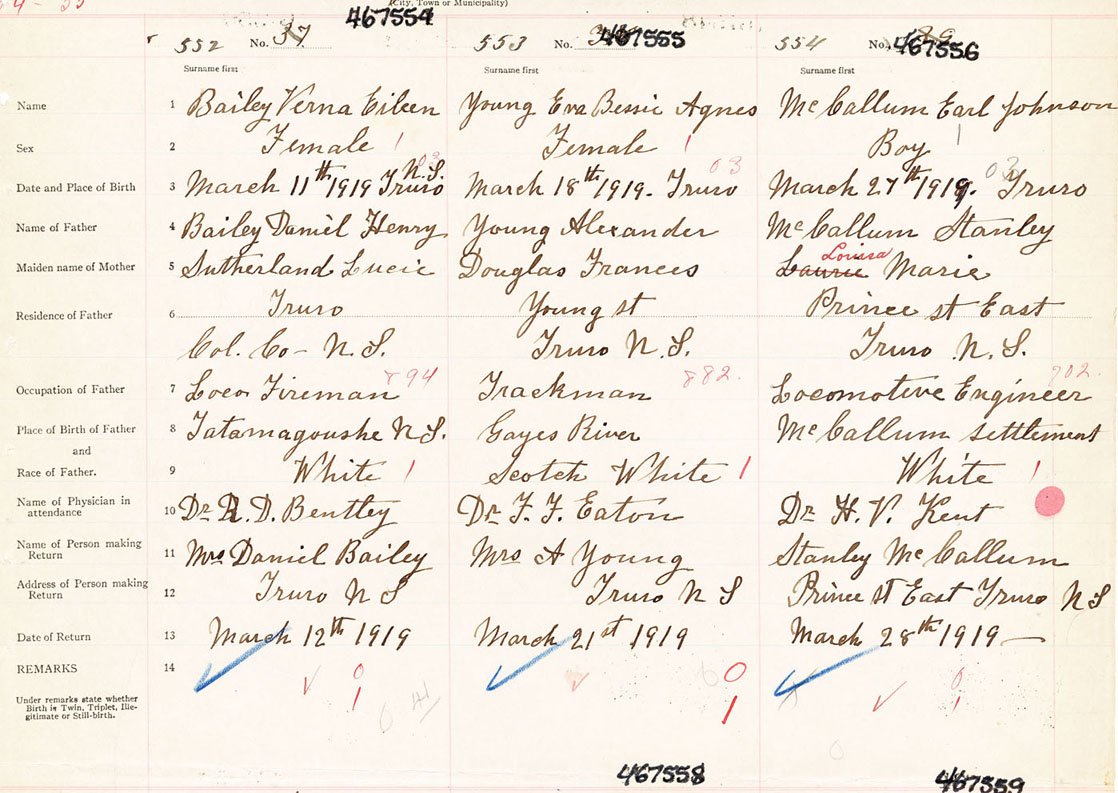 (City, Town or Municipality)
467554 467555 467556
552 No. 37 553 No. 554 No.
Surname first Surname first Surname first
Name 1 Bailey Verna Eileen Young Eva Bessie Agnes McCallum Earl Johnson
Sex 2 Female 1 Female 1 Boy 1
03 03 03
Date and Place of Birth 3 March 11th 1919 Truro N.S. March 18th 1919. Truro March 27th 1919. Truro
Name of Father 4 Bailey Daniel Henry Young Alexander McCallum Stanley
Maiden name of Mother 5 Sutherland Lucie Douglas Frances Laurie Louisa Marie
Residence of Father 6 Truro Young st Prince st East
Col. Co- N.S. Truro N.S. Truro N.S.
894 882. 902.
Occupation of Father 7 Loco Fireman Trackman Locomotive Engineer
Place of Birth of Father 8 Tatamagoushe N.S. Gayes River McCallum settlement
and
Race of Father. 9 White 1 Scotch White 1 White 1
Name of Physician in
attendance 10 Dr R.D. Bentley Dr F.F. Eaton Dr H.V. Kent
Name of Person making
Return 11 Mrs Daniel Bailey Mrs A Young Stanley McCallum
Address of Person making
Return 12 Truro N S Truro N S Prince st East Truro N S
Date of Return 13 March 12th 1919 March 21st 1919 March 28th 1919
REMARKS 14
0 0 0
1 1 1
Under remarks state whether
Birth is Twin, Triplet, Ille-
gitimate or Still-birth.
467558 467559